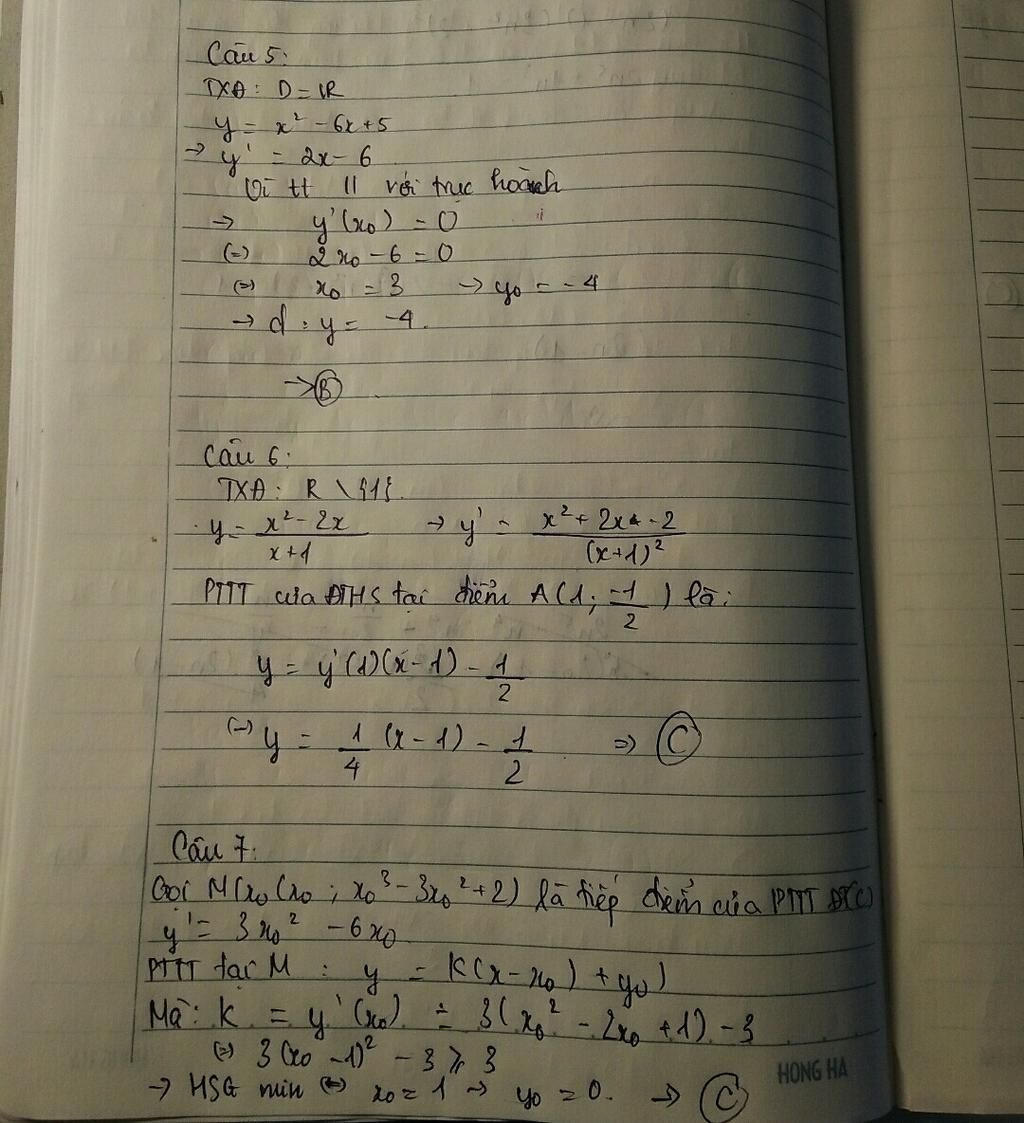 Câu 5:
TXĐ: D = ℝ
y = x² - 6x + 5
→ y' = 2x - 6
Vì tt // với trục hoành
→ y'(x₀) = 0
(=) 2x₀ - 6 = 0
(=) x₀ = 3 → y₀ = -4
→ d : y = -4.
→ Ⓑ
Câu 6:
TXĐ: R \ {1}.
y = (x² - 2x)/(x + 1) → y' = (x² + 2x - 2)/(x+1)²
PTTT của ĐTHS tại điểm A(1; -1/2) là:
y = y'(1)(x - 1) - 1/2
(=) y = 1/4 (x - 1) - 1/2 => Ⓒ
Câu 7:
Gọi M(x₀(x₀ ; x₀³ - 3x₀² + 2) là tiếp điểm của PTTT Đ(C)
y' = 3x₀² - 6x₀
PTTT tại M : y = k(x - x₀) + y₀)
Mà: k = y'(x₀) = 3(x₀² - 2x₀ + 1) - 3
(=) 3(x₀ - 1)² - 3 ≥ 3
→ HSG min (=) x₀ = 1 → y₀ = 0. → Ⓒ
HONG HA